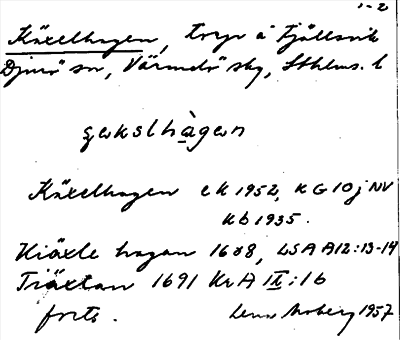 1-2
Käxelhagen, torp å Fjällsvik
Djurö sn, Värmdö skg, Sthlms. l
ɕäkslhàgan
Käxelhagen ek 1952, KG 10 j NV
kb 1935.
Kiäxle hagan 1688, LSA A12:13-14
Tiäxtan 1691 KrA IX:16
forts.
Lena Moberg 1957